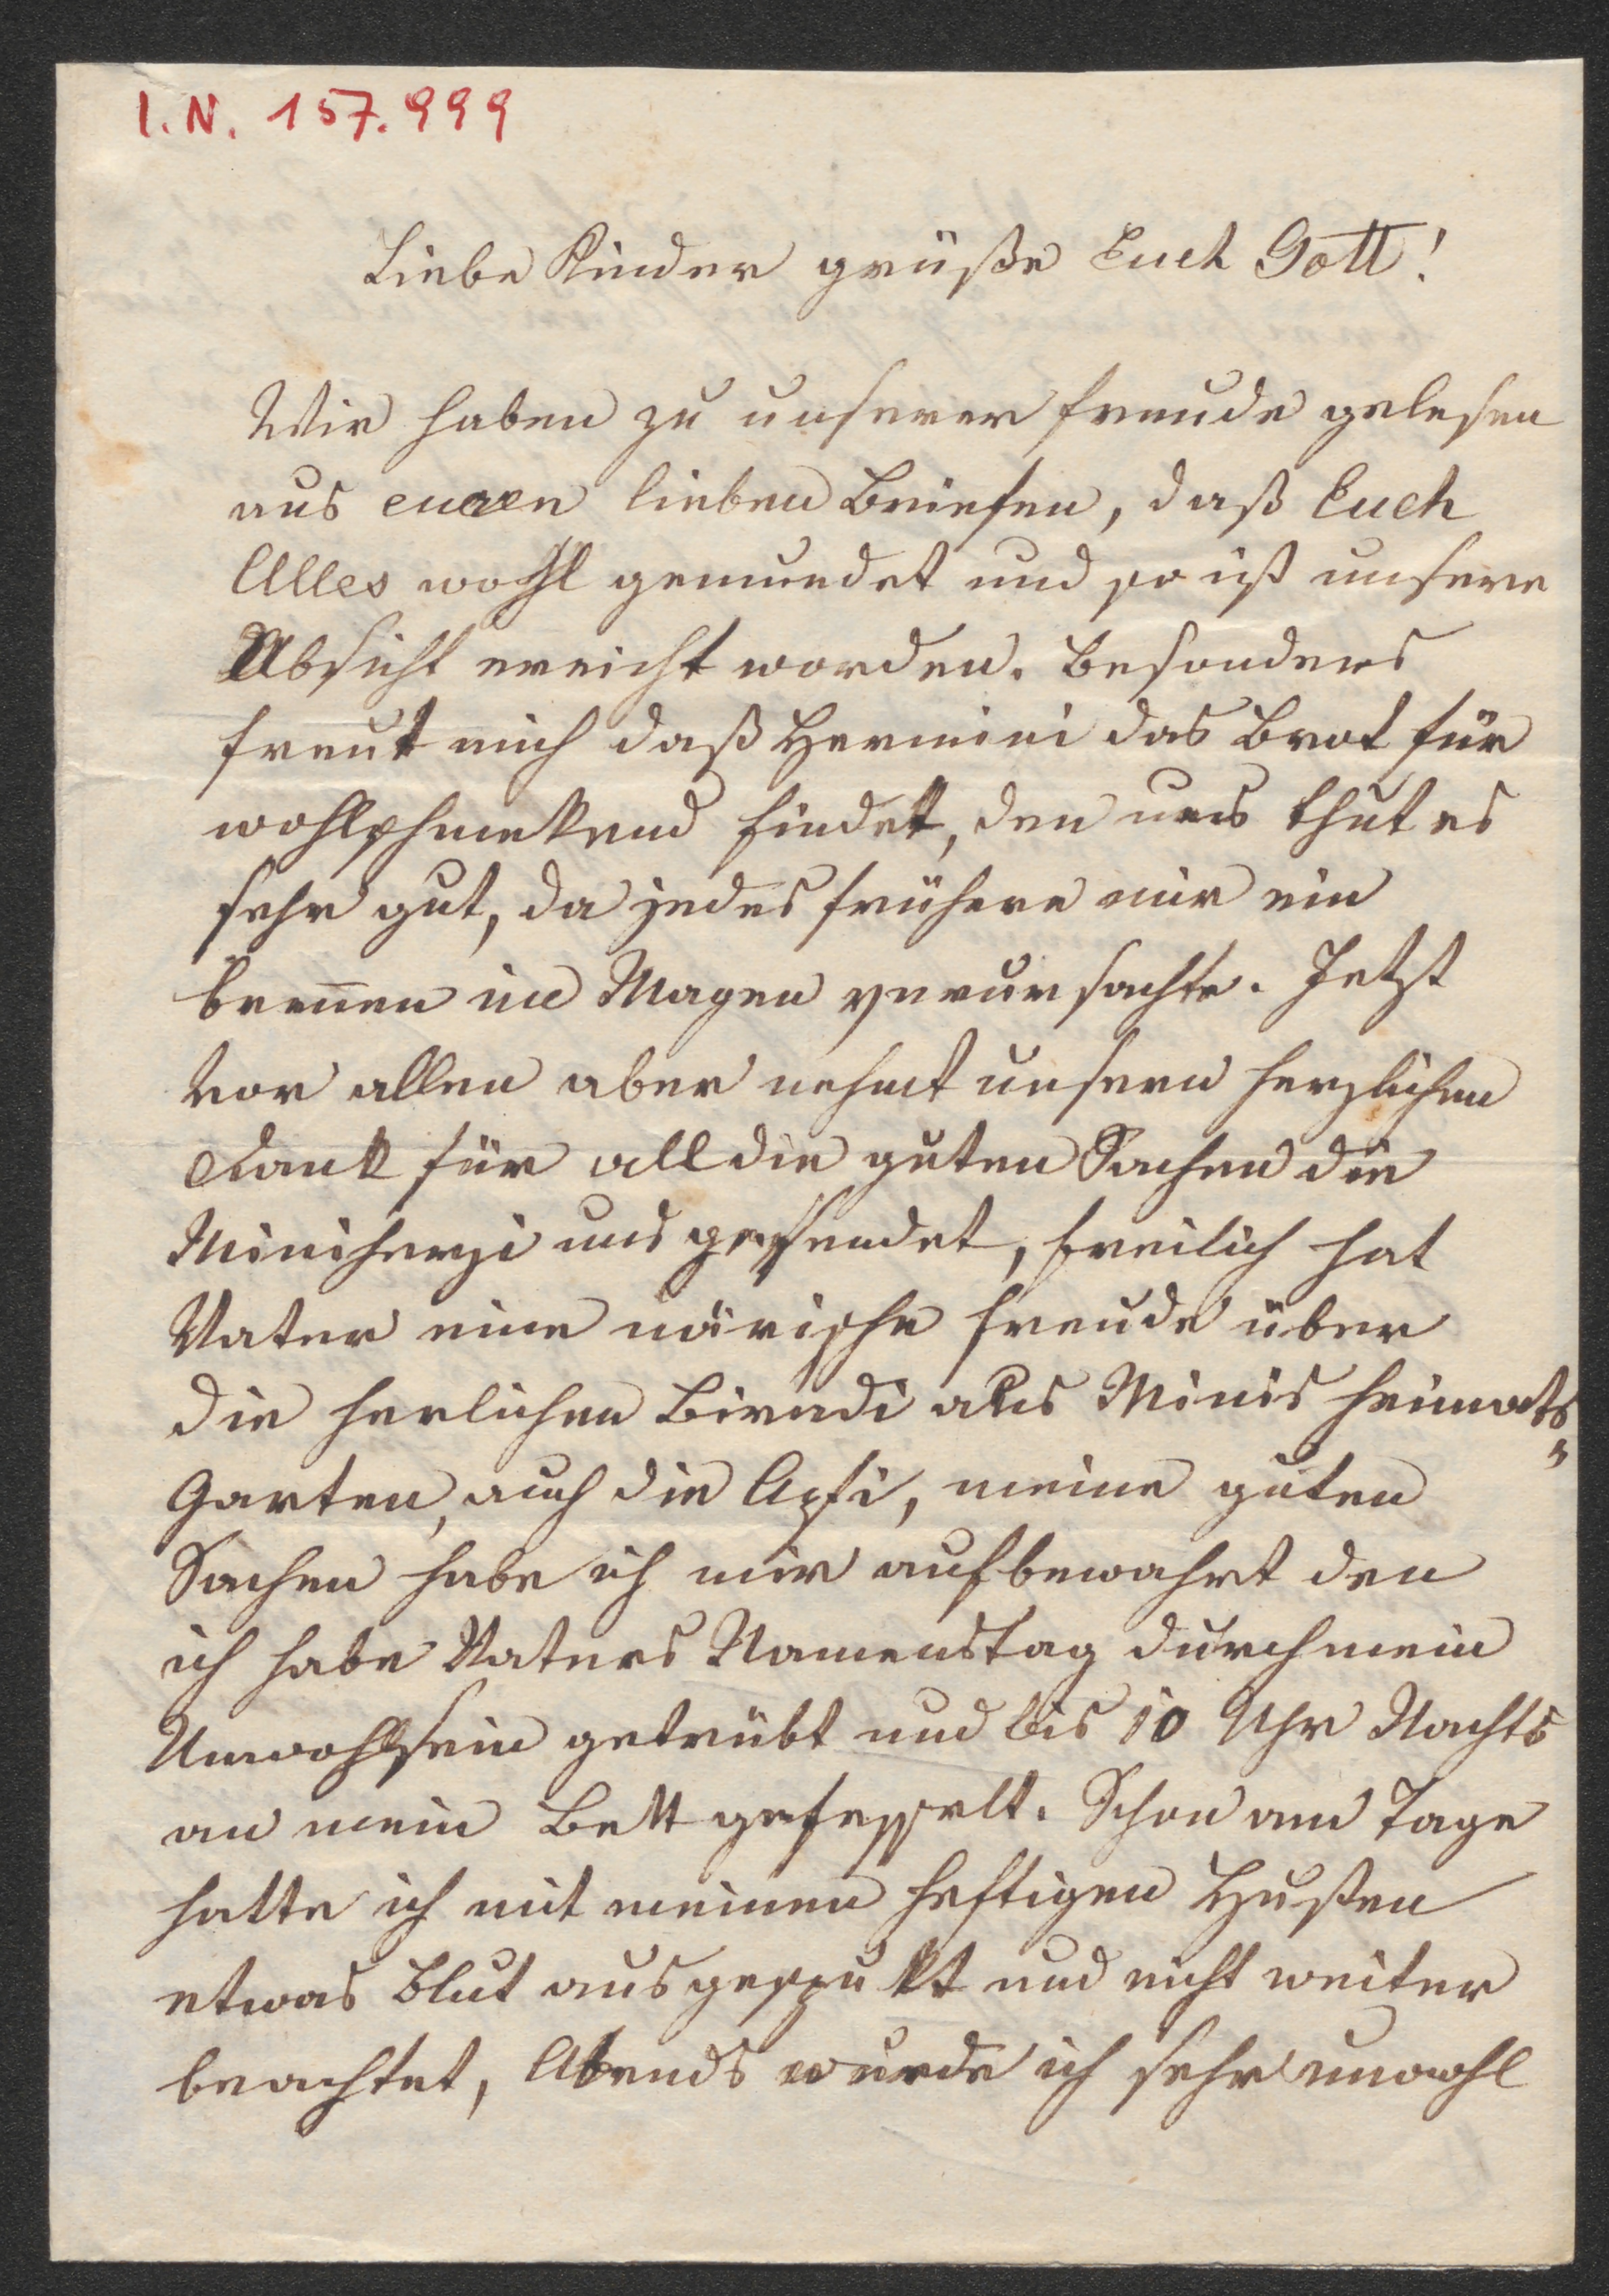 I. N. 157.999
Liebe Kinder grüße Euch Gott!
Wir haben zu unserer Freude gelesen
aus euren lieben Briefen, daß Euch
Alles wohl gemundet und so ist unsere
Absicht erreicht worden. Besonders
freut mich daß Hermini das Brot für
wohlschmekend findet, den uns thut es
sehr gut, da jedes frühere mir ein
breñen im Magen verursachte. Jetzt
vor allen aber nehmt unsern herzlichen
Dank für all die guten Sachen die
Miniherzi uns gesendet, freilich hat
Vater eine närische Freude über
die herlichen Birndi aus Minis Heimats„
Garten, auch die Apfi, meine guten
Sachen habe ich mir aufbewahrt den
ich habe Vaters Namenstag durch mein
Unwohlsein getrübt und bis 10 Uhr Nachts
an mein Bett gefesselt. Schon am Tage
hatte ich mit meinen heftigen Husten
etwas Blut ausgespukt und nicht weiter
beachtet, Abends wurde ich sehr unwohl